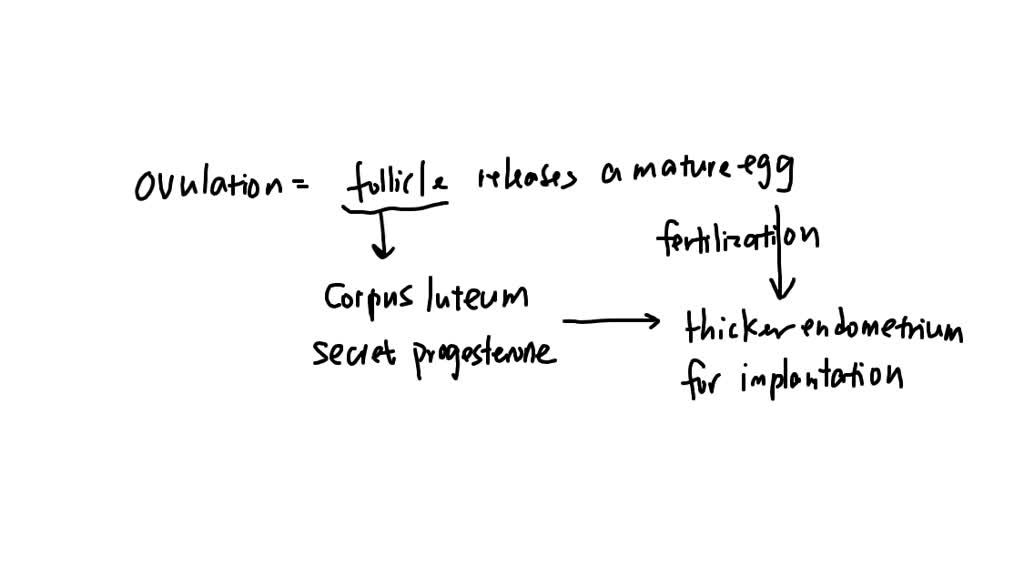 ovulation = follicle releases a mature egg
fertilization
Corpus luteum
secret progesterone
thicker endometrium
for implantation